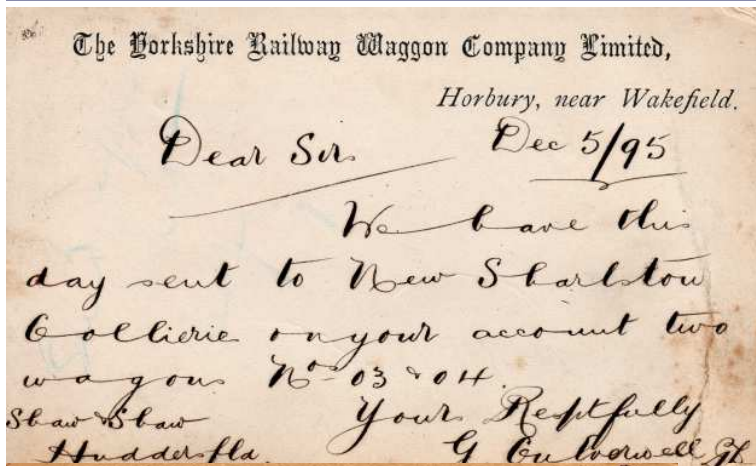 The Yorkshire Railway Waggon Company Limited,
Horbury, near Wakefield.
Dear Sir Dec 5/95
We have this
day sent to New Sharlston
Collierie on your account two
wagons Nos 03 & 04.
Shaw & Shaw Yours Resptfully
Huddersfld. G Culverwell